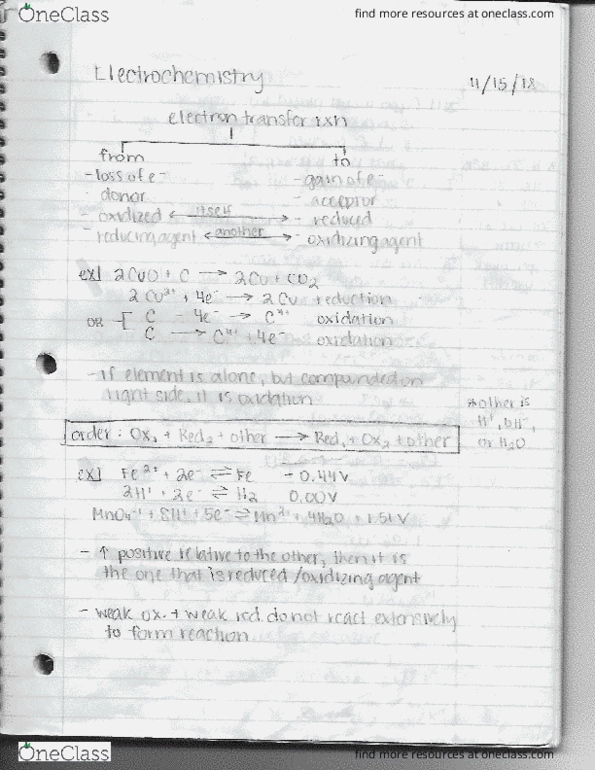 OneClass
find more resources at oneclass.com
Electrochemistry 11/15/18
electron transfer rxn
from to
- loss of e⁻ - gain of e⁻
- donor - acceptor
- oxidized ← itself → - reduced
- reducing agent ← another → - oxidizing agent
ex] 2CuO + C → 2Cu + CO₂
2Cu²⁺ + 4e⁻ → 2Cu reduction
OR C - 4e⁻ → C⁴⁺ oxidation
C → C⁴⁺ + 4e⁻ oxidation
- if element is alone, but compounded on
right side, it is oxidation
*other is
H⁺, OH⁻,
or H₂O
order: Ox₁ + Red₂ + other → Red₁ + Ox₂ + other
ex] Fe²⁺ + 2e⁻ ⇌ Fe - 0.44V
2H⁺ + 2e⁻ ⇌ H₂ 0.00V
MnO₄⁻¹ + 8H⁺ + 5e⁻ ⇌ Mn²⁺ + 4H₂O + 1.51V
- ↑ positive relative to the other, then it is
the one that is reduced/oxidizing agent
- weak ox. + weak red. do not react extensively
to form reaction
OneClass
find more resources at oneclass.com